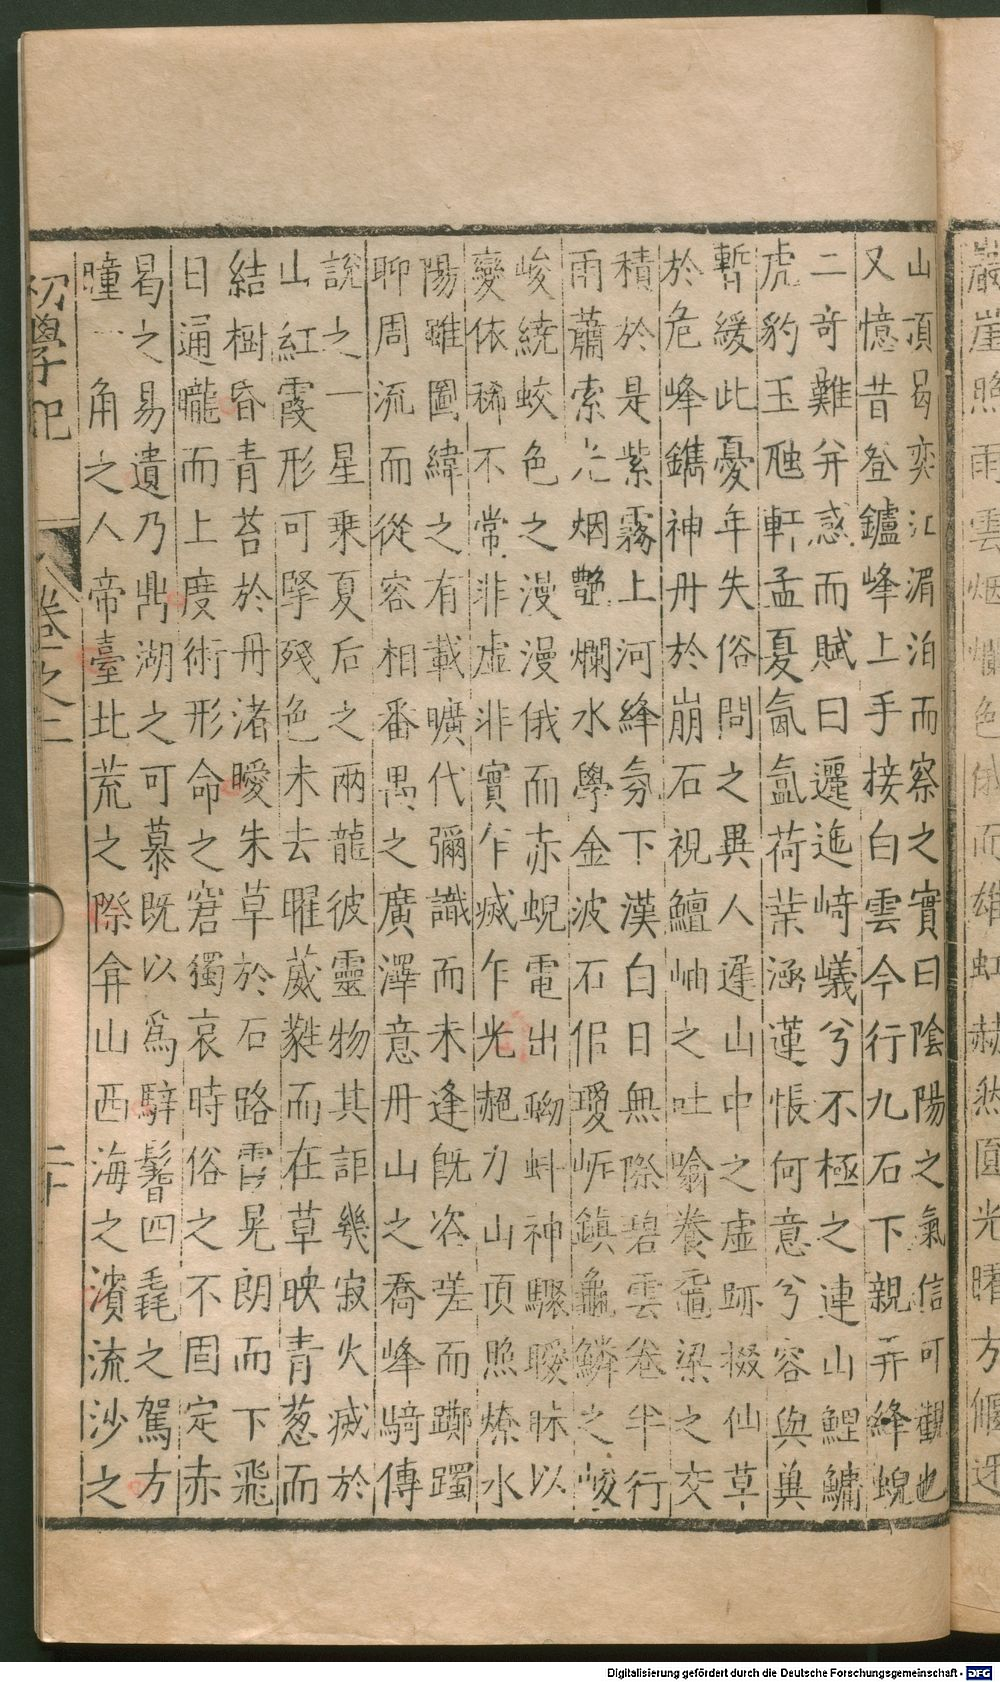 巖崖照雨雲烟爛色俄而雄虹赫然圓光曙方偃逶
山頂曷奕江湄泊而察之實曰陰陽之氣信可觀也
又憶昔登鑪峰上手接白雲今行九石下親弄絳蜺
二奇難并惑而賦曰邐迤崎嶬兮不極之連山鯉鱅
虎豹玉虺軒孟夏氤氳荷葉涵蓮悵何意兮容與冀
暫緩此憂年失俗問之異人遲山中之虛跡掇仙草
於危峰鐫神丹於崩石視鱣岫之吐噏養黿梁之交
積於是紫霧上河絳氛下漢白日無際碧雲卷半行
雨蕭索光烟艷爛水學金波石佀璦岝鎮龜鱗之崚
峻繞蛟色之漫漫俄而赤蜺電出蚴蚪神驟曖昧以
變依稀不常非虛非實乍滅乍光赩力山頂照燎水
陽雖圖緯之有載曠代彌識而未逢既咨嗟而躑躅
聊周流而從容相番禺之廣澤意丹山之喬峰騎傅
說之一星乗夏后之兩龍彼靈物其詎幾寂火滅於
山紅霞形可掔殘色未去曜葳蕤而在草映青蔥而
結樹昏青苔於丹渚曖朱草於石路霄晃朗而下飛
日通曨而上度術形命之窘獨哀時俗之不固定赤
曷之易遺乃鼎湖之可慕既以爲騂髾四毳之駕方
瞳一角之人帝臺北荒之際弇山西海之濱流沙之
初學記 卷之二 二十
Digitalisierung gefördert durch die Deutsche Forschungsgemeinschaft - DFG